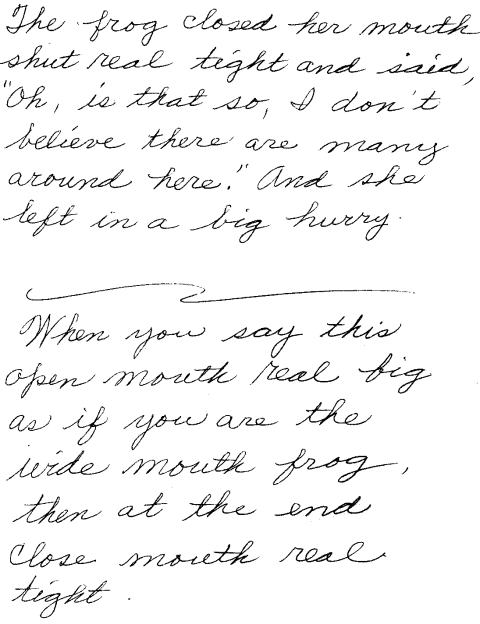 The frog closed her mouth
shut real tight and said,
"Oh, is that so, I don't
believe there are many
around here!" And she
left in a big hurry.
When you say this
open mouth real big
as if you are the
wide mouth frog,
then at the end
close mouth real
tight.